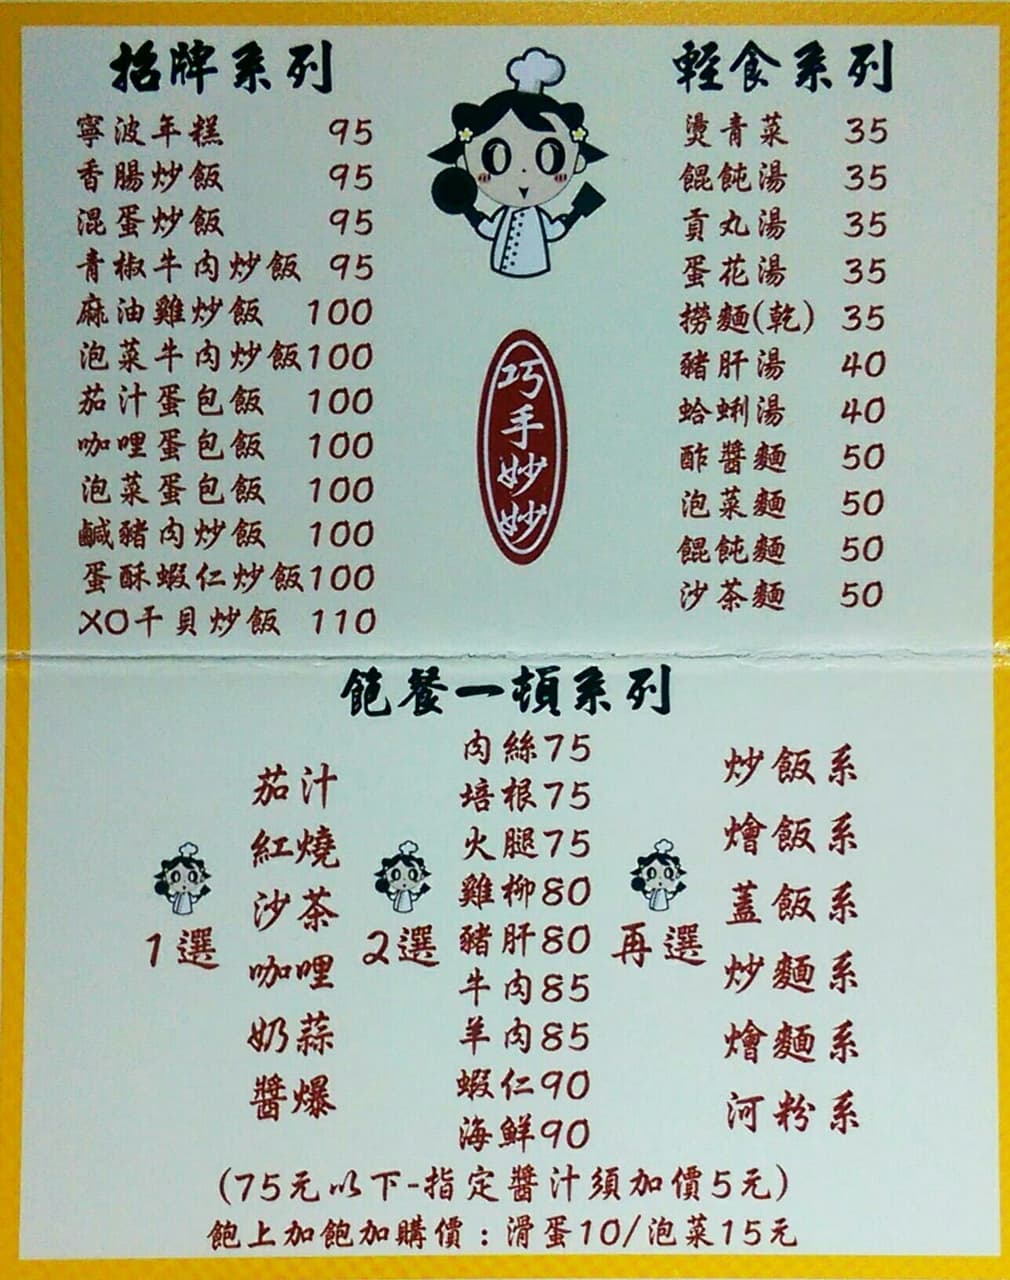 招牌系列
寧波年糕 95
香腸炒飯 95
混蛋炒飯 95
青椒牛肉炒飯 95
麻油雞炒飯 100
泡菜牛肉炒飯100
茄汁蛋包飯 100
咖哩蛋包飯 100
泡菜蛋包飯 100
鹹豬肉炒飯 100
蛋酥蝦仁炒飯100
XO干貝炒飯 110
巧手妙妙
輕食系列
燙青菜 35
餛飩湯 35
貢丸湯 35
蛋花湯 35
撈麵(乾) 35
豬肝湯 40
蛤蜊湯 40
酢醬麵 50
泡菜麵 50
餛飩麵 50
沙茶麵 50
飽餐一頓系列
1選
茄汁
紅燒
沙茶
咖哩
奶蒜
醬爆
2選
肉絲75
培根75
火腿75
雞柳80
豬肝80
牛肉85
羊肉85
蝦仁90
海鮮90
再選
炒飯系
燴飯系
蓋飯系
炒麵系
燴麵系
河粉系
(75元以下-指定醬汁須加價5元)
飽上加飽加購價：滑蛋10/泡菜15元